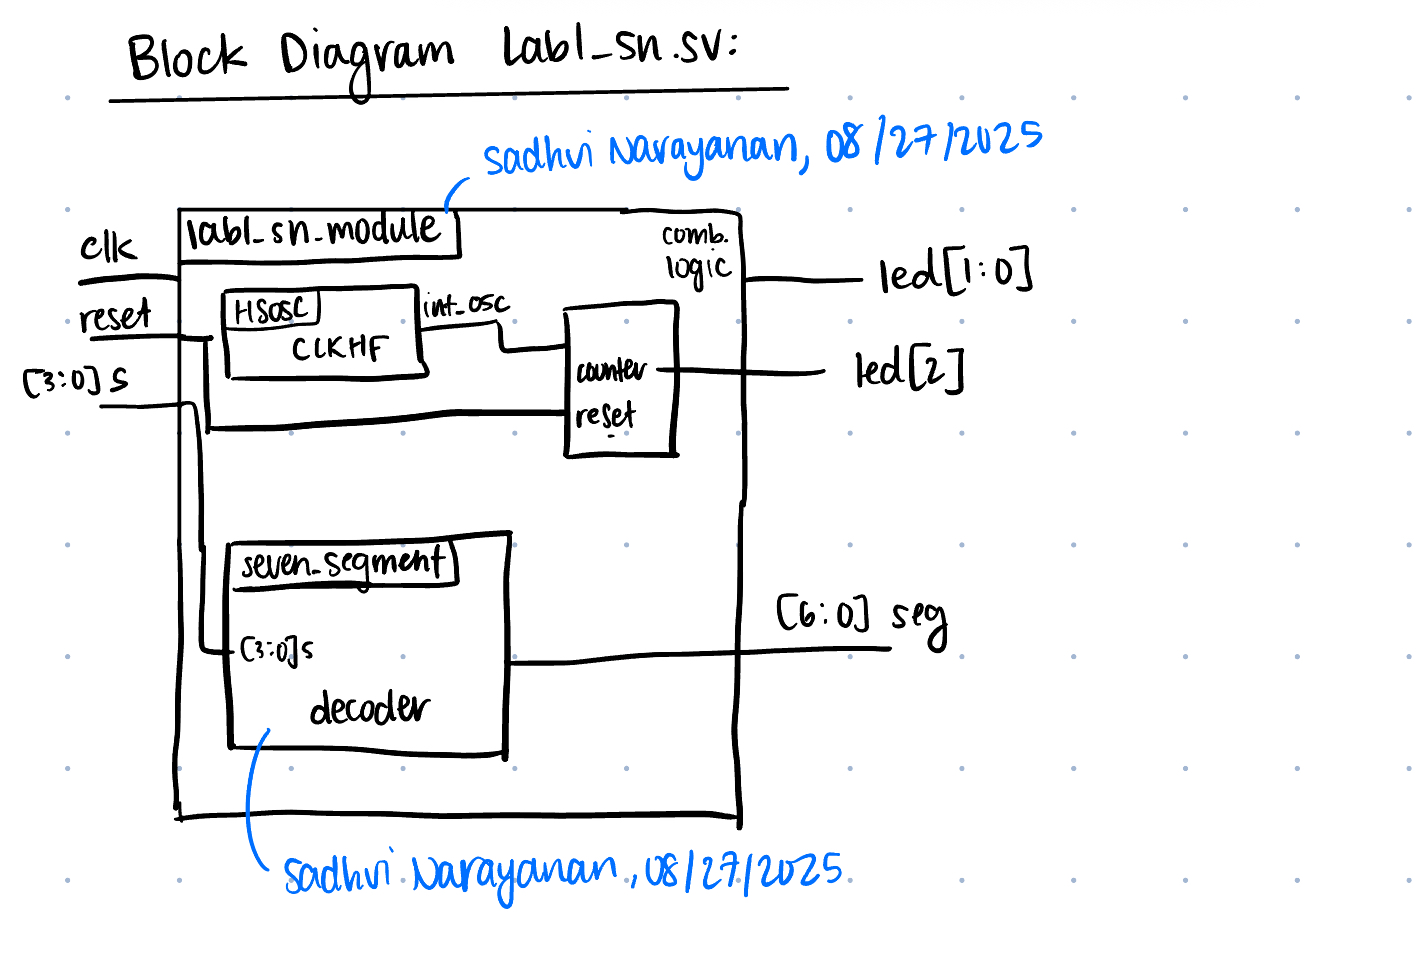 Block Diagram lab1_sn.sv:
Sadhvi Narayanan, 08/27/2025
lab1_sn_module
comb.
logic
clk
reset
[3:0] s
HSOSC
CLKHF
int_osc
counter
reset
led[1:0]
led[2]
seven_segment
[3:0]s
decoder
[6:0] seg
Sadhvi Narayanan, 08/27/2025